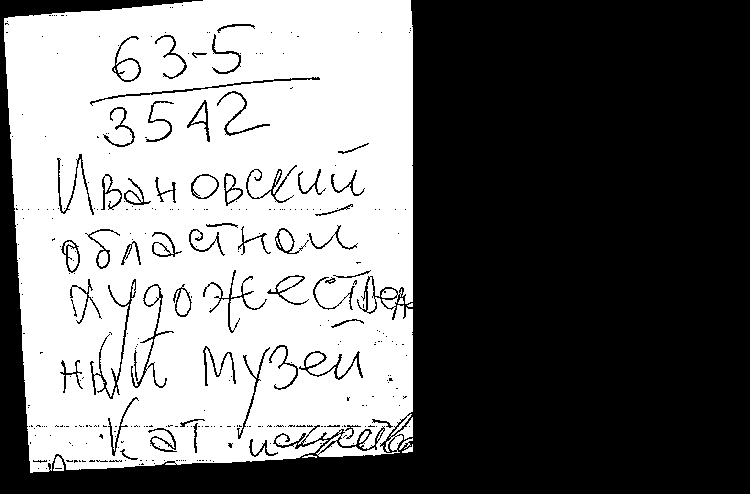 63-5
3542
Ивановский
областной
художествен
ный музей
Кат. искусства